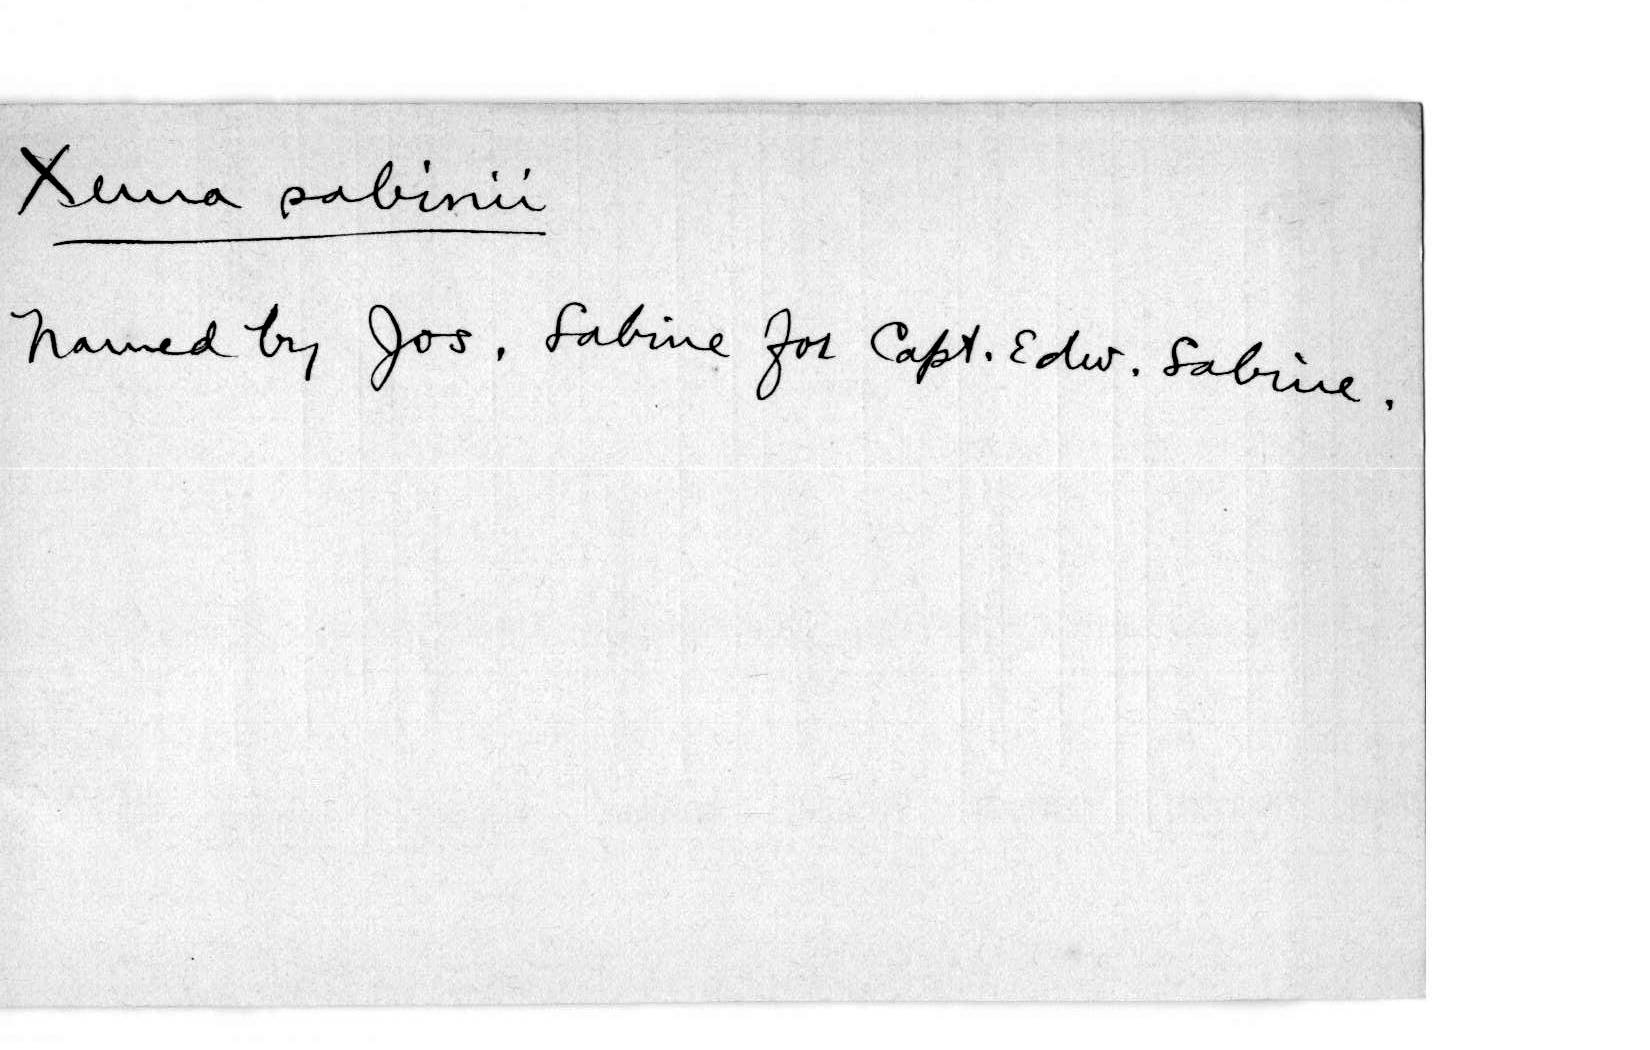 Xema sabinii
Named by Jos. Sabine for Capt. Edw. Sabine.